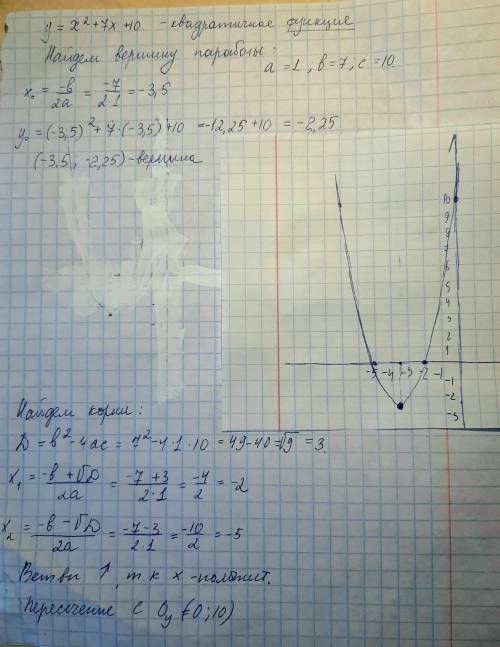 y = x² + 7x + 10. - квадратичная функция
Найдем вершину параболы:
a = 1, в = 7, c = 10
x₀ = -в/2a = -7/2·1 = -3,5
y₀ = (-3,5)² + 7·(-3,5) + 10 = -12,25 + 10 = -2,25
(-3,5; -2,25) - вершина
10
9
8
7
6
5
4
3
2
1
-5 -4 -3 -2 -1
-1
-2
-3
Найдем корни:
D = в² - 4ac = 7² - 4·1·10 = 49 - 40 = √9 = 3.
x₁ = -в + √D/2a = -7 + 3/2·1 = -4/2 = -2
x₂ = -в - √D/2a = -7 - 3/2·1 = -10/2 = -5
Ветви ↑, т.к х - полож ит.
Пересечение с Oy (0; 10)